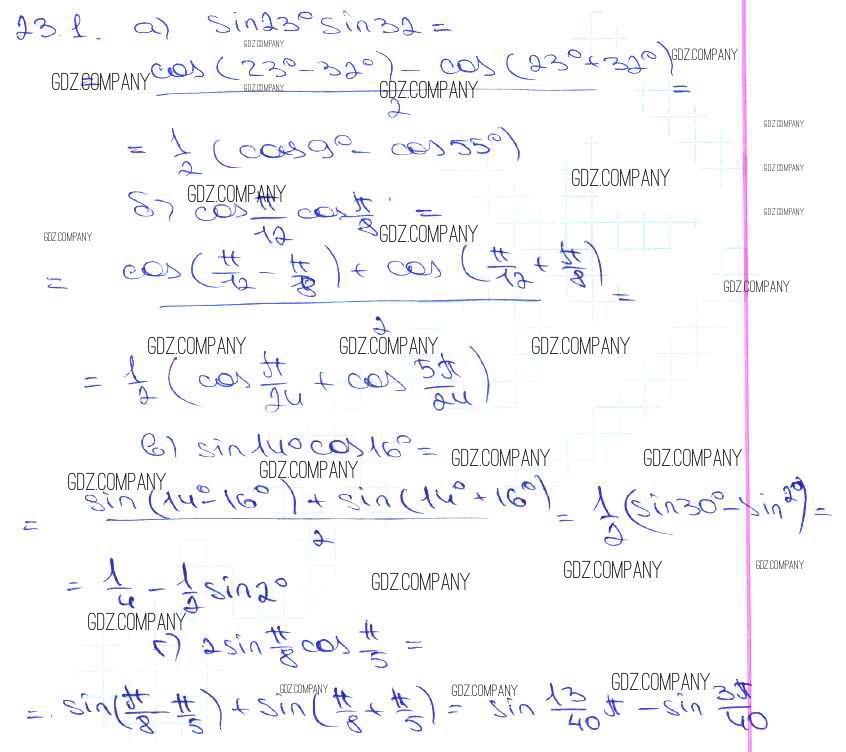 23.1. а) sin23° sin32 =
GDZ.COMPANY
cos(23°-32°) - cos(23°+32°) GDZ.COMPANY
GDZ.COMPANY GDZ.COMPANY GDZ.COMPANY
2 =
GDZ.COMPANY
= 1/2 (cos9° - cos55°)
GDZ.COMPANY
GDZ.COMPANY GDZ.COMPANY
б) cos π/12 cos π/8 =
GDZ.COMPANY
GDZ.COMPANY GDZ.COMPANY
= cos(π/12 - π/8) + cos(π/12 + π/8) =
GDZ.COMPANY
2
GDZ.COMPANY GDZ.COMPANY GDZ.COMPANY
= 1/2 (cos π/24 + cos 5π/24)
в) sin14° cos16° =
GDZ.COMPANY GDZ.COMPANY GDZ.COMPANY
GDZ.COMPANY
= sin(14°-16°) + sin(14°+16°) / 2 = 1/2 (sin30° - sin2°) =
GDZ.COMPANY GDZ.COMPANY
= 1/4 - 1/2 sin2°
GDZ.COMPANY
GDZ.COMPANY
г) 2sin π/8 cos π/5 =
GDZ.COMPANY GDZ.COMPANY GDZ.COMPANY
= sin(π/8 - π/5) + sin(π/8 + π/5) = sin 13/40 π - sin 3π/40